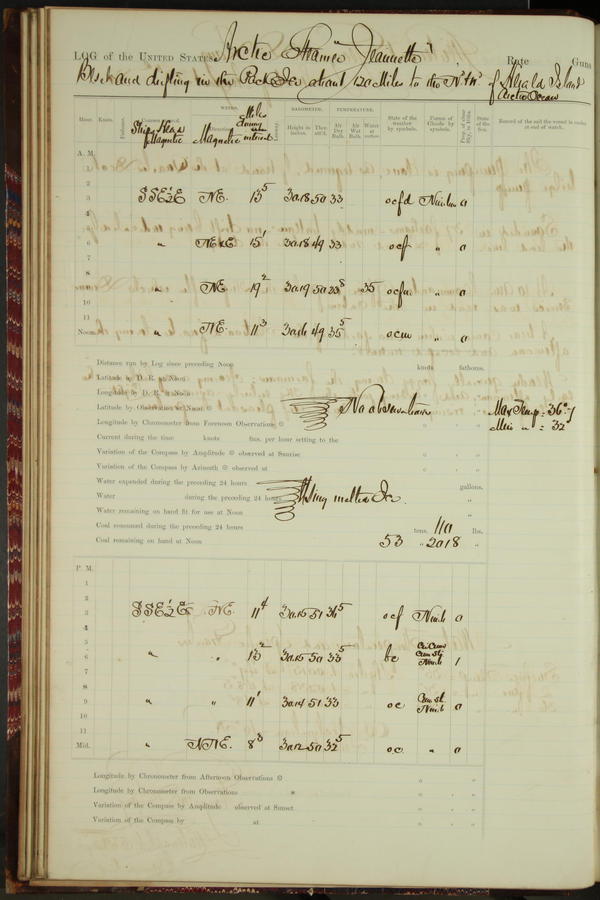 LOG of the UNITED STATES Arctic Steamer "Jeannette" Rate Guns
Beset and drifting in the Pack Ice about 120 Miles to the of Herald Island
Arctic Ocean
Hour. Knots. Fathoms. Ship's Head Magnetic WINDS. Magnetic Miles during interval Leeway. BAROMETER. Height in inches. Ther. att'd. TEMPERATURE. Air Dry Bulb. Air Wet Bulb. Water at surface. State of the weather by symbols. Forms of Clouds by symbols. State of the Sea. Record of the sail the vessel is under at end of watch.
A. M.
1
2
3 SSE½E NE. 15⁵ 30.18 50 33 ocfd Nimbus 0
4
5
6 " 15¹ 30.18 49 33 ocf " 0
7
8
9 " NE. 19² 30.19 50 33⁸ 35 " 0
10
11
Noon " NE. 11³ 49 35⁵ ocm " 0
Distance run by Log since preceding Noon knots fathoms.
Latitude by D. R. at Noon
Longitude by D. R. at Noon
Latitude by Observation at Noon No observations Max Temp = 36°.7
Longitude by Chronometer from Forenoon Observations Min " = 32
Current during the time knots fms. per hour setting to the
Variation of the Compass by Amplitude observed at Sunrise
Variation of the Compass by Azimuth observed at
Water expended during the preceding 24 hours gallons.
Water during the preceding 24 hours Using melted Ice "
Water remaining on hand fit for use at Noon "
Coal consumed during the preceding 24 hours tons. 110 lbs.
Coal remaining on hand at Noon 53 " 2018 "
P. M.
1
2
3 SSE½E NE. 11⁴ 30.15 51 34⁵ ocf Nimb 0
4
5
6 " " 13² 30.15 50 33⁵ bc Nimb 1
7
8
9 " " 11¹ 30.14 51 33 oc Cum st. Nimb 0
10
11
Mid. " NNE. 8⁸ 30.12 50 32⁵ oc. " 0
Longitude by Chronometer from Afternoon Observations
Longitude by Chronometer from Observations
Variation of the Compass by Amplitude observed at Sunset
Variation of the Compass by at